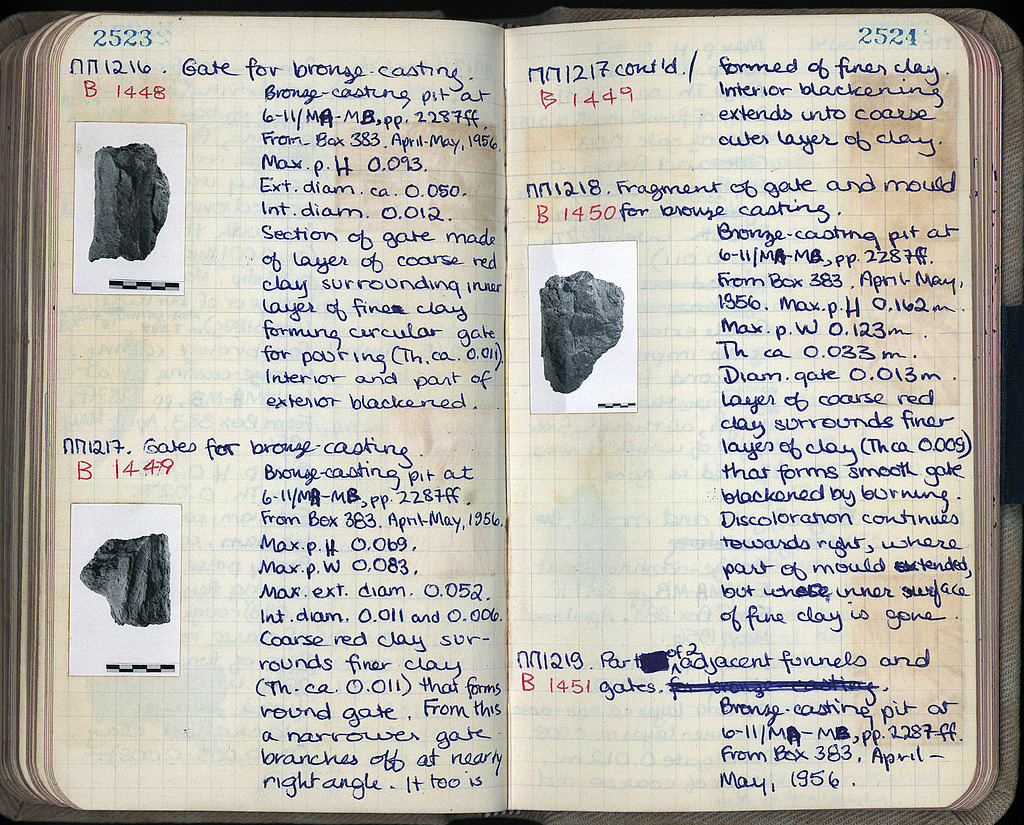 2523
ΠΠ1216. Gate for bronze-casting.
B 1448
Bronze-casting pit at
6-11/ΜΑ-ΜΒ, pp. 2287ff.
From Box 383. April-May, 1956.
Max. p. H 0.093.
Ext. diam. ca. 0.050.
Int. diam. 0.012.
Section of gate made
of layer of coarse red
clay surrounding inner
layer of fine clay
forming circular gate
for pouring (Th. ca. 0.011).
Interior and part of
exterior blackened.
ΠΠ1217. Gates for bronze-casting
B 1449
Bronze-casting pit at
6-11/ΜΑ-ΜΒ, pp. 2287ff.
From Box 383. April-May, 1956.
Max. p. H 0.069.
Max. p. W 0.083.
Max. ext. diam. 0.052.
Int. diam. 0.011 and 0.006.
Coarse red clay sur-
rounds finer clay
(Th. ca. 0.011) that forms
round gate. From this
a narrower gate
branches off at nearly
right angle. It too is
2524
ΠΠ1217 cont'd./ formed of finer clay.
B 1449 Interior blackening
extends into coarse
outer layer of clay.
ΠΠ1218. Fragment of gate and mould
B 1450 for bronze casting.
Bronze-casting pit at
6-11/ΜΑ-ΜΒ, pp. 2287ff.
From Box 383. April-May,
1956. Max. p. H 0.162 m.
Max. p. W 0.123 m.
Th ca 0.033 m.
Diam. gate 0.013 m.
Layer of coarse red
clay surrounds finer
layes of clay (Th ca 0.009)
that forms smooth gate
blackened by burning.
Discoloration continues
towards right, where
part of mould extended,
but whose inner surface
of fine clay is gone.
ΠΠ1219. Part of 2 adjacent funnels and
B 1451 gates. for bronze casting.
Bronze-casting pit at
6-11/ΜΑ-ΜΒ, pp. 2287-ff.
From Box 383. April-
May, 1956.